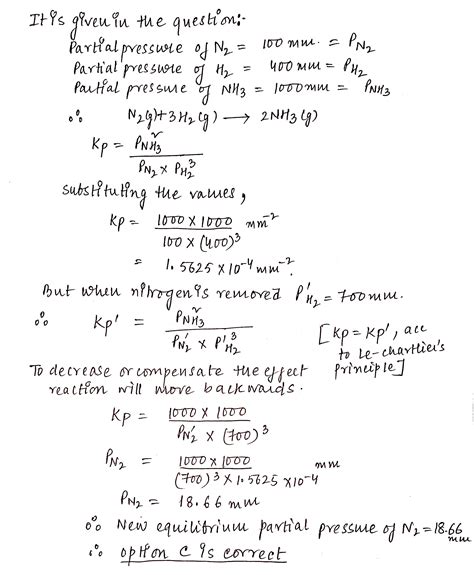 It is given in the question:-
Partial pressure of N2 = 100 mm. = PN2
Partial pressure of H2 = 400 mm = PH2
Partial pressure of NH3 = 1000 mm = PNH3
∴ N2(g) + 3H2(g) ⟶ 2NH3(g)
Kp = PNH3^2 / PN2 × PH2^3
substituting the values,
Kp = 1000 × 1000 / 100 × (400)^3 mm^-2
= 1.5625 × 10^-4 mm^-2.
But when nitrogen is removed P'H2 = 700 mm.
∴ Kp' = PNH3^2 / PN2' × P'H2^3 [Kp = Kp', acc
to Le-chartlier's
principle]
To decrease or compensate the effect
reaction will move backwards.
Kp = 1000 × 1000 / PN2' × (700)^3
PN2 = 1000 × 1000 / (700)^3 × 1.5625 × 10^-4 mm
PN2 = 18.66 mm
∴ New equilibrium partial pressure of N2 = 18.66 mm
∴ option C is correct